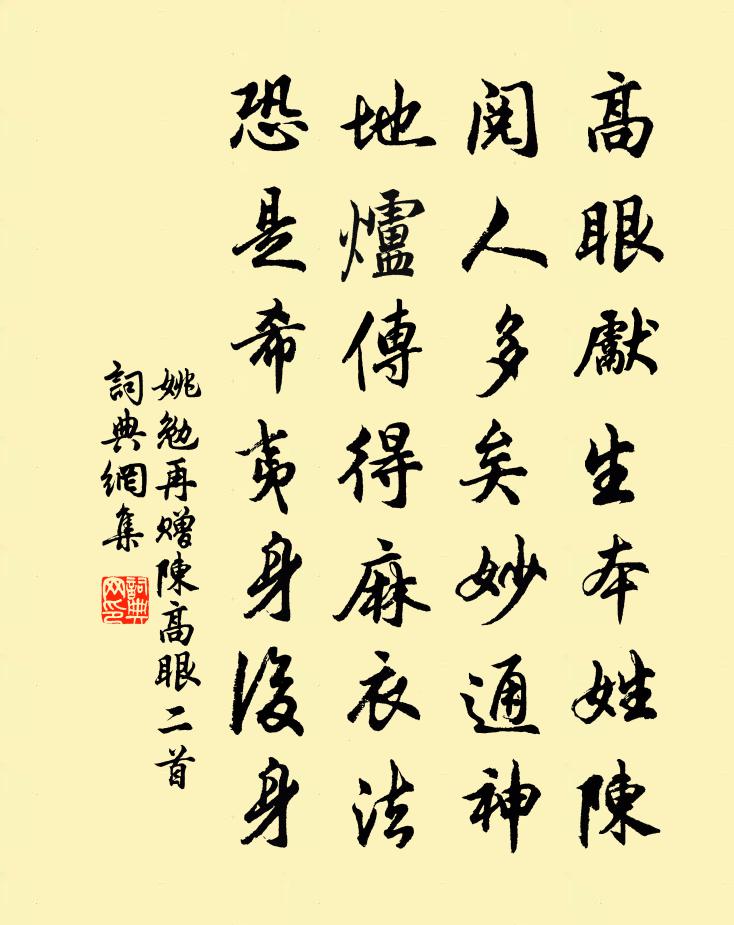 高眼獻生本姓陳
閱人多矣妙通神
地爐傳得麻衣法
恐是希夷身後身
姚勉再贈陳高眼二首
詞典網集
詞典